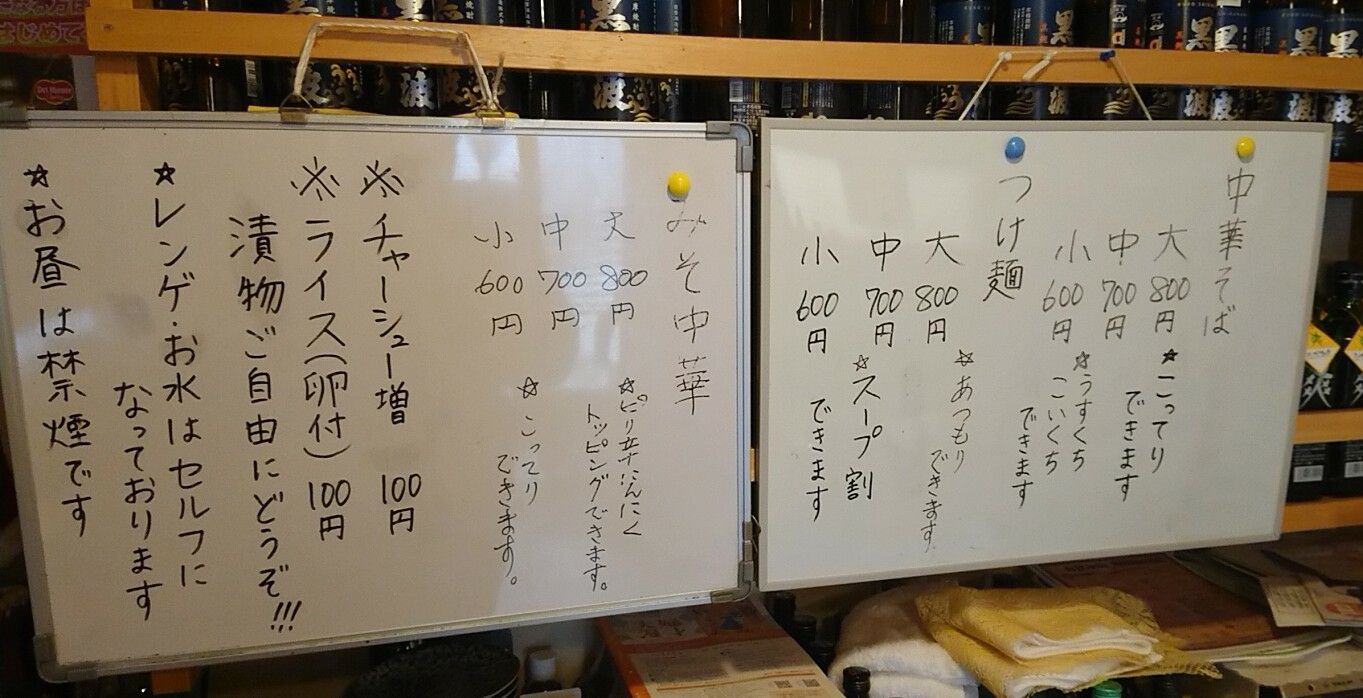 中華そば
大 800円
中 700円
小 600円
★こってり
できます
☆うすくち
こいくち
できます
つけ麺
大 800円
中 700円
小 600円
☆あつもり
できます
★スープ割
できます
みそ中華
大 800円
中 700円
小 600円
★ピリ辛にんにく
トッピングできます。
☆こってり
できます。
※チャーシュー増 100円
※ライス(卵付) 100円
漬物ご自由にどうぞ!!!
★レンゲ・お水はセルフに
なっております
☆お昼は禁煙です
Del Monte
黒
黒
黒
黒
黒
波
波
波